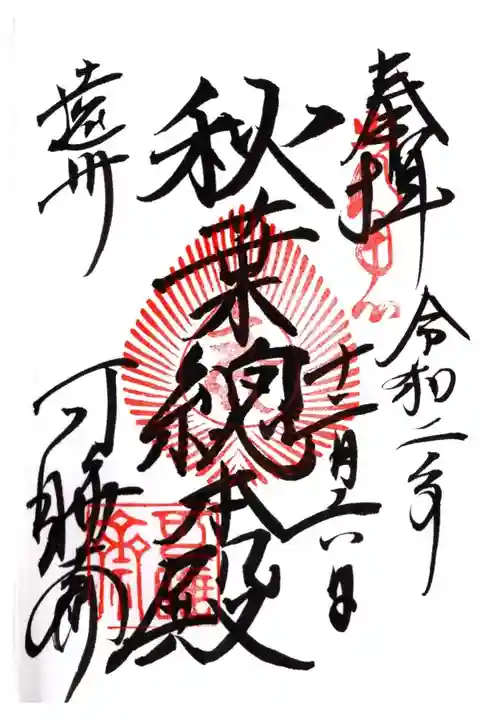 奉拝
令和二年
十二月六日
秋葉總本殿
遠州
可睡斎